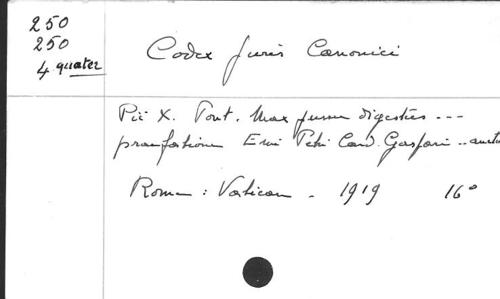 250
250
4 quater
Codex Juris Canonici
Pii X. Pont. Max jussu digestus ---
praefatione Emi Petri Card. Gaspari .. auctus
Romae : Vatican - 1919 16°